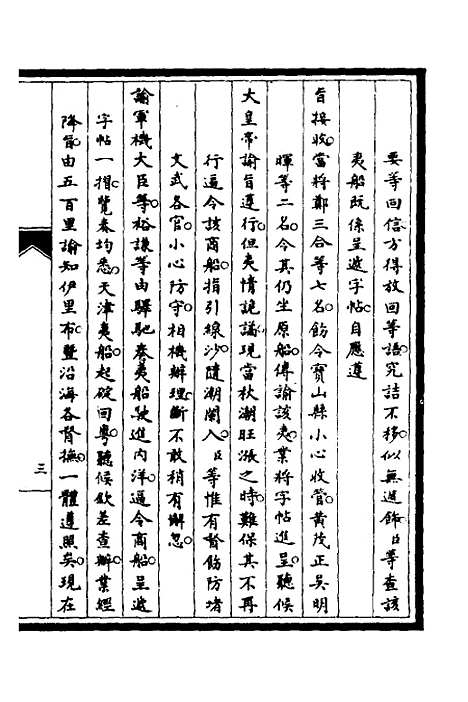 要等回信方得放回等語究詰不移似無過飾臣等查該
夷船既係呈遞字帖自應遵
旨接收當將鄭三合等七名飭令寶山縣小心收管黃茂正吳明
暉等二名令其仍坐原船傳諭該夷業將字帖進呈聽候
大皇帝諭旨遵行但夷情詭譎現當秋潮旺漲之時難保其不再
行逼令該商船指引線沙隨潮闌入臣等惟有督飭防堵
文武各官小心防守相機辦理斷不敢稍有懈忽
諭軍機大臣等裕謙等由驛馳奏夷船駛進內洋逼令商船呈遞
字帖一摺覽奏均悉天津夷船起碇回粵聽候欽差查辦業經
降旨由五百里諭知伊里布暨沿海各督撫一體遵照矣現在
三